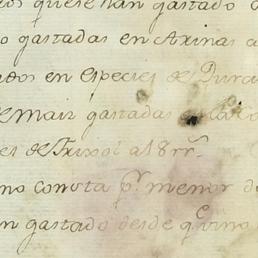 os que se han gastado
o gastadas en Arinas a
ados en especies de
e Mais gastadas
es de Frixol a 18 rr.ˢ
no consta p.ʳ menor de
n gastado desde q.ᵉ vino